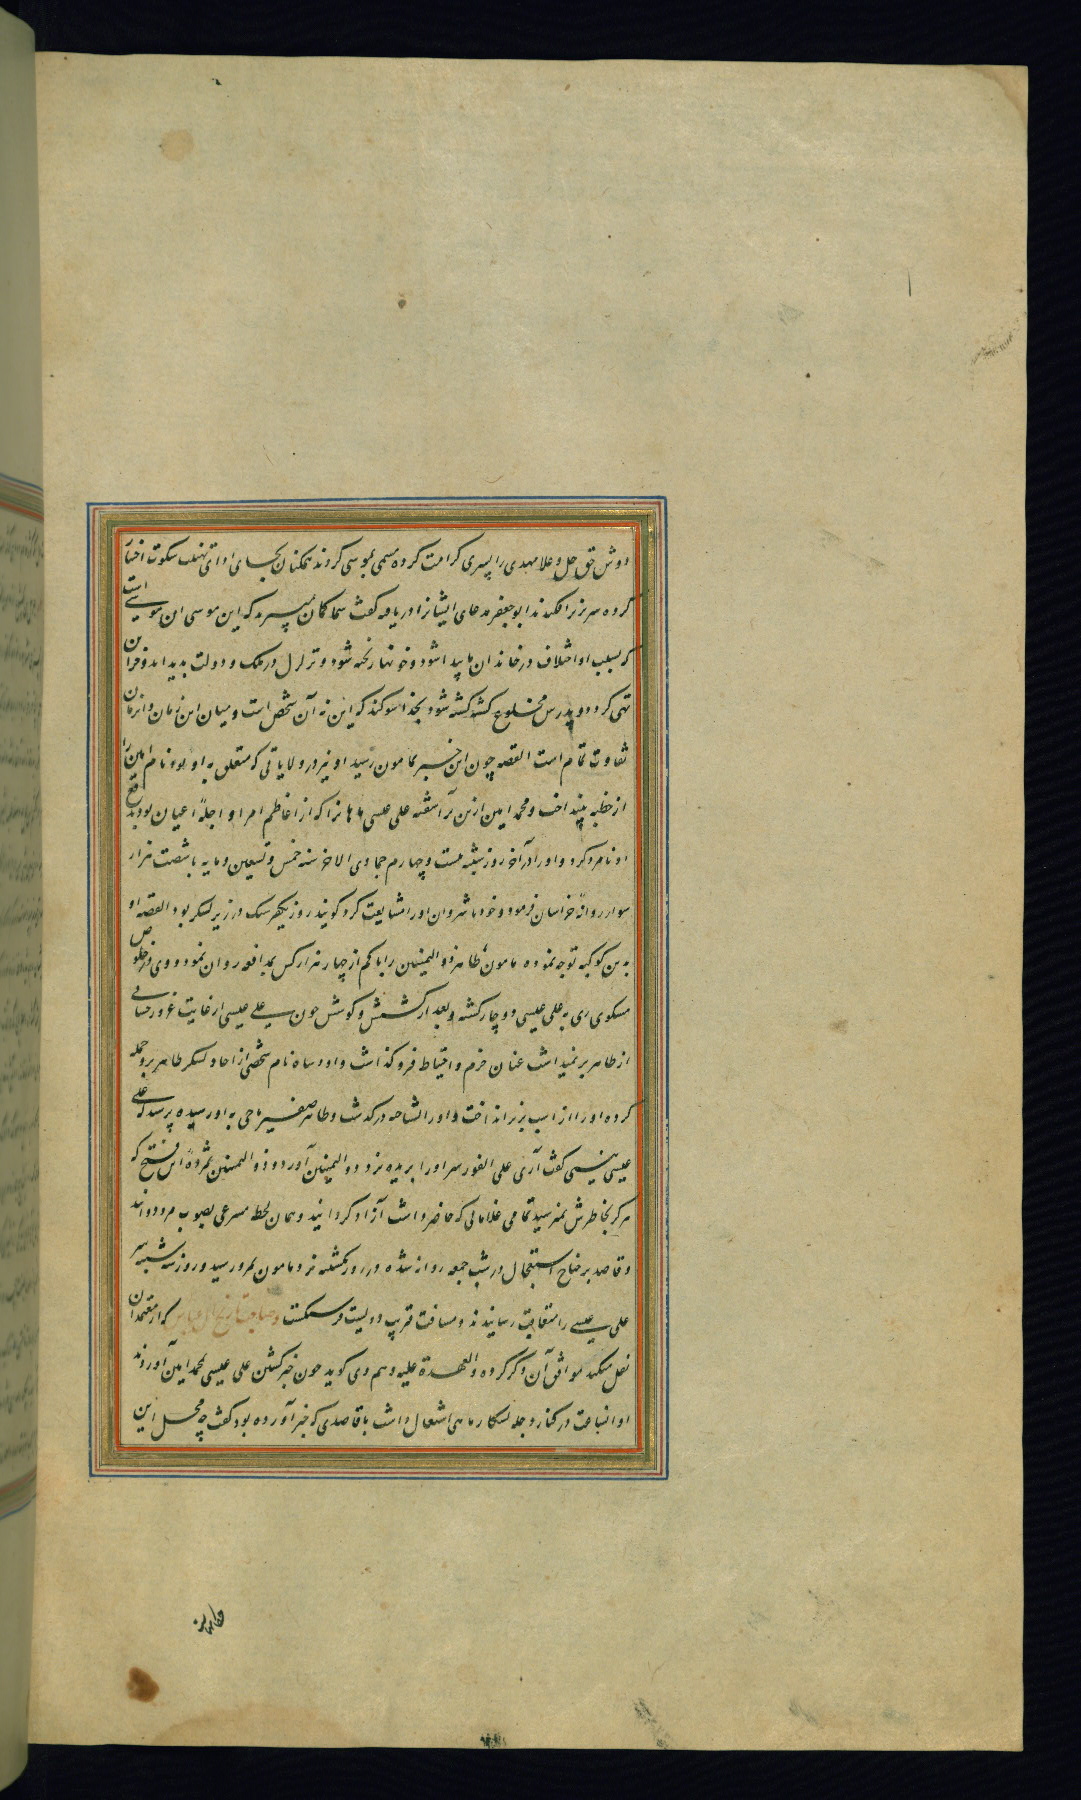 دوش حق جل وعلا مهدی را پسری کرامت کرده مسمی بموسی کردند همکنان بجای او اتی تهنیت سکوت اختیار
کرده سر بزیر افکندند ابو جعفر مدعای ایشانرا دریافته کفت شما کمان میبرید که این موسی آن موسی است
که بسبب او اختلاف در خاندان ما پیدا شود و خونها ریخته شود و تزلزل در ملک و دولت پدید آید و خزاین
تهی کردد و پدرش مخلوع کشته کشته شود بخدا سوکند که این نه آن شخص است و میان این زمان و آن زمان
تفاوت تمام است القصه چون این خبر بمامون رسید او نیز در ولایاتی که متعلق به او بود نام امین را
از خطبه بینداخت و محمد امین ازین بر آشفته علی عیسی ماهانرا که از اعاظم امرا و اجلهٔ اعیان بود بدفع
او نامزد کرد و او را در آخر روز شنبه بیست و چهارم جمادی الاخر سنه خمس و تسعین و مایه با شصت هزار
سوار روانهٔ خراسان فرمود و خود تا نهروان او را مشایعت کرد کویند روز یکفرسنک در زیر لشکر بود القصه او
به این کوکبه توجه نموده مامون طاهر ذو الیمینین را با کم از چهار هزار کس بمدافعه روان نمود و وی در خلوص
مسکوی ری به علی عیسی دوچار کشته و بعد از کشش و کوشش چون علی عیسی از غایت غرور حسابی
از طاهر بر نمیداشت عنان حزم و احتیاط فرو کذاشت و داود سیاه نام شخصی از آحاد لشکر طاهر برو حمله
کرده او را از اسب بزیر انداخت و او را نشناخته درکذشت و طاهر صغیر ناجی به او رسیده پرسید که علی
عیسی نیستی کفت آری علی الفور سر او را بریده نزد ذو الیمینین آورد و ذو الیمینین بمژدهٔ این فتح که
هرکز بخاطرش نمیرسید تمامی غلامانی که حاضر داشت آزاد کردانید و همان لحظه مسرعی بصوب مرو دوانید
و قاصد بر جناح استعجال در شب جمعه روانه شده در روز یکشنبه نزد مامون بمرو رسید و روز سه شنبه سر
علی عیسی را متعاقب رسانیدند و مسافت قریب دویست فرسنکست و صاحب تاریخ آل عباس که از معتمدان
نقل میکند موافق آن ذکر کرده و العهدة علیه و هم وی کوید چون خبر کشتن علی عیسی بمحمد امین آوردند
او انساعت در کنار دجله بشکار ماهی اشتغال داشت با قاصدی که خبر آورده بود کفت چه محل این